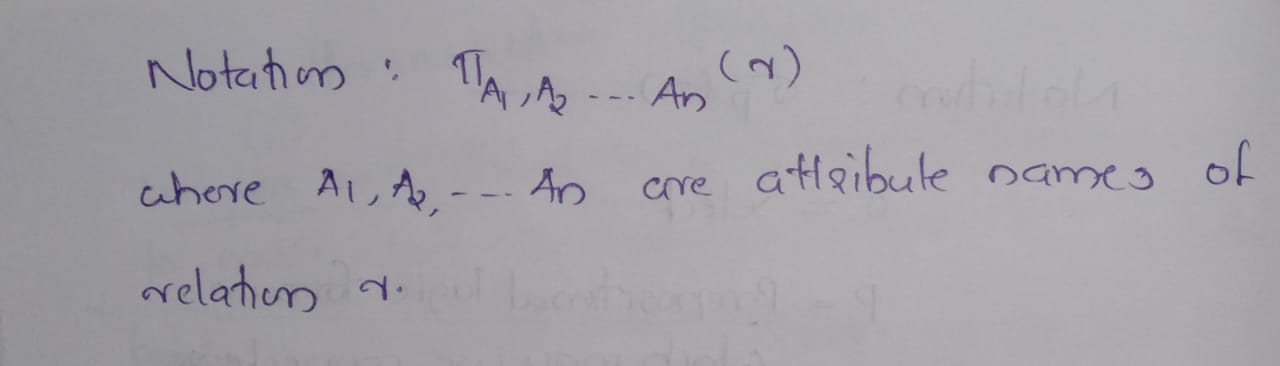 Notation : π A1, A2 --- An (r)
where A1, A2, --- An are attribute names of
relation r.